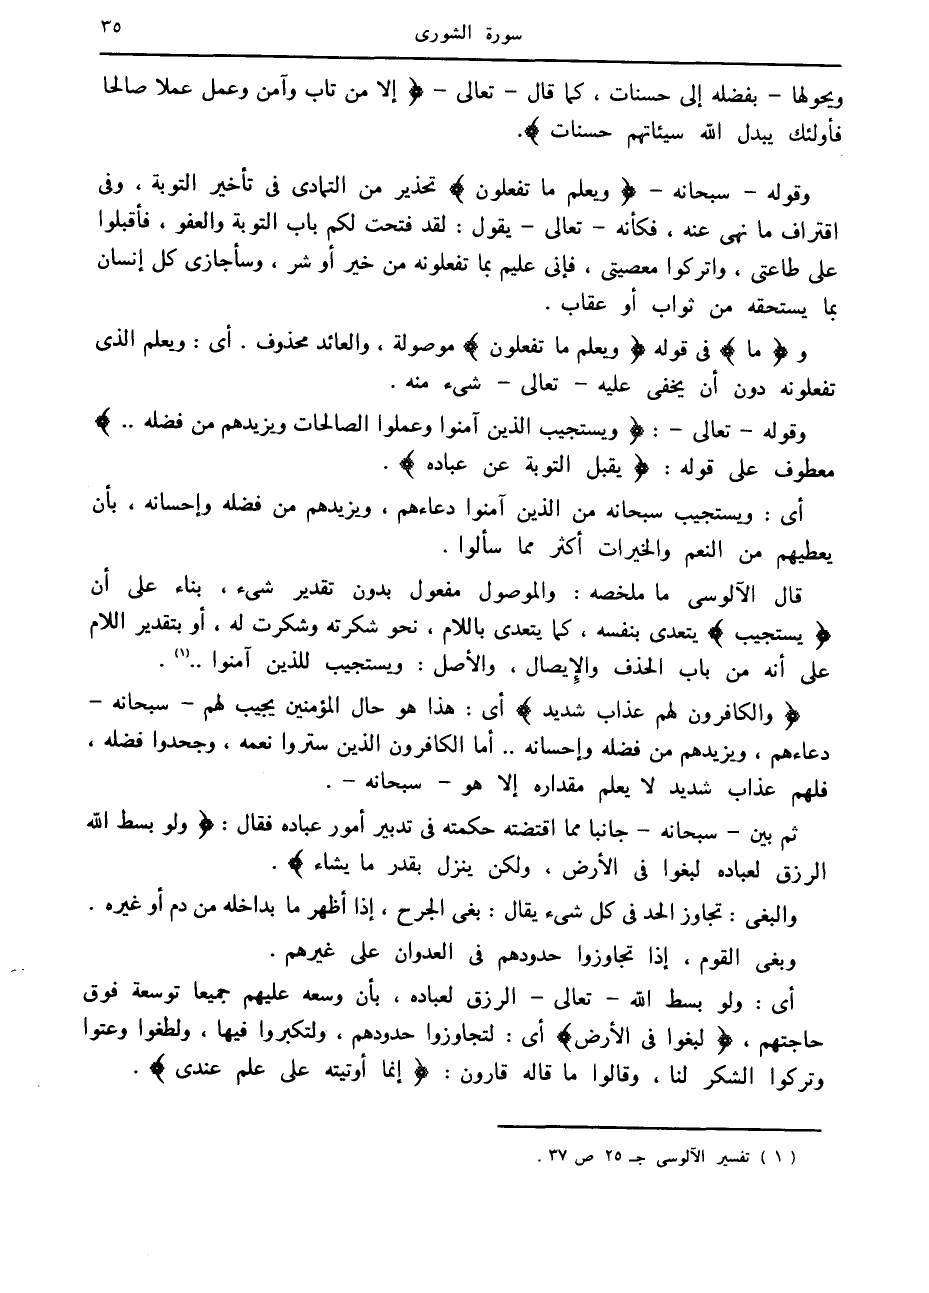 سورة الشورى ٣٥
ويحولها – بفضله إلى حسنات ، كما قال – تعالى – ﴿ إلا من تاب وآمن وعمل عملا صالحا
فأولئك يبدل الله سيئاتهم حسنات ﴾.
وقوله – سبحانه – ﴿ ويعلم ما تفعلون ﴾ تحذير من التمادى فى تأخير التوبة ، وفى
اقتراف ما نهى عنه ، فكأنه – تعالى – يقول : لقد فتحت لكم باب التوبة والعفو ، فأقبلوا
على طاعتى ، واتركوا معصيتى ، فإنى عليم بما تفعلونه من خير أو شر ، وسأجازى كل إنسان
بما يستحقه من ثواب أو عقاب .
و ﴿ ما ﴾ فى قوله ﴿ ويعلم ما تفعلون ﴾ موصولة ، والعائد محذوف . أى : ويعلم الذى
تفعلونه دون أن يخفى عليه – تعالى – شىء منه .
وقوله – تعالى – : ﴿ ويستجيب الذين آمنوا وعملوا الصالحات ويزيدهم من فضله .. ﴾
معطوف على قوله : ﴿ يقبل التوبة عن عباده ﴾ .
أى : ويستجيب سبحانه من الذين آمنوا دعاءهم ، ويزيدهم من فضله وإحسانه ، بأن
يعطيهم من النعم والخيرات أكثر مما سألوا .
قال الآلوسى ما ملخصه : والموصول مفعول بدون تقدير شىء ، بناء على أن
﴿ يستجيب ﴾ يتعدى بنفسه ، كما يتعدى باللام ، نحو شكرته وشكرت له ، أو بتقدير اللام
على أنه من باب الحذف والإيصال ، والأصل : ويستجيب للذين آمنوا ..(١) .
﴿ والكافرون لهم عذاب شديد ﴾ أى : هذا هو حال المؤمنين يجيب لهم – سبحانه –
دعاءهم ، ويزيدهم من فضله وإحسانه .. أما الكافرون الذين ستروا نعمه ، وجحدوا فضله ،
فلهم عذاب شديد لا يعلم مقداره إلا هو – سبحانه – .
ثم بين – سبحانه – جانبا مما اقتضته حكمته فى تدبير أمور عباده فقال : ﴿ ولو بسط الله
الرزق لعباده لبغوا فى الأرض ، ولكن ينزل بقدر ما يشاء ﴾ .
والبغى : تجاوز الحد فى كل شىء يقال : بغى الجرح ، إذا أظهر ما بداخله من دم أو غيره .
وبغى القوم ، إذا تجاوزوا حدودهم فى العدوان على غيرهم .
أى : ولو بسط الله – تعالى – الرزق لعباده ، بأن وسعه عليهم جميعا توسعة فوق
حاجتهم ، ﴿ لبغوا فى الأرض﴾ أى : لتجاوزوا حدودهم ، ولتكبروا فيها ، ولطغوا وعتوا
وتركوا الشكر لنا ، وقالوا ما قاله قارون : ﴿ إنما أوتيته على علم عندى ﴾ .
( ١ ) تفسير الآلوسى جـ ٢٥ ص ٣٧ .